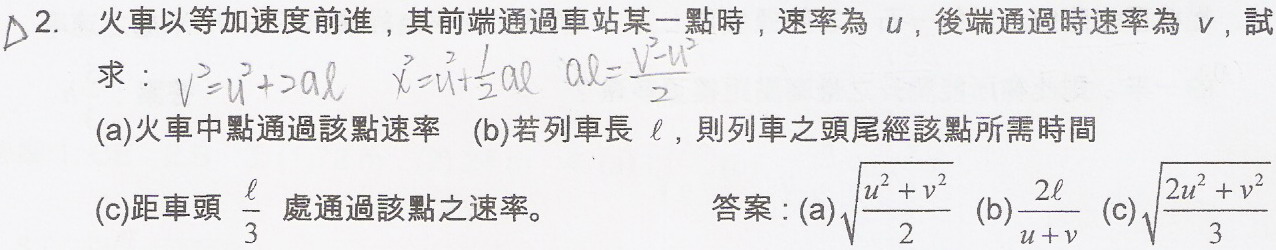 △2. 火車以等加速度前進，其前端通過車站某一點時，速率為 u，後端通過時速率為 v，試
求： v²=u²+2al x²=u²+½al al=(v²-u²)/2
(a)火車中點通過該點速率 (b)若列車長 ℓ，則列車之頭尾經該點所需時間
(c)距車頭 ℓ/3 處通過該點之速率。 答案：(a)√((u²+v²)/2) (b)2ℓ/(u+v) (c)√((2u²+v²)/3)